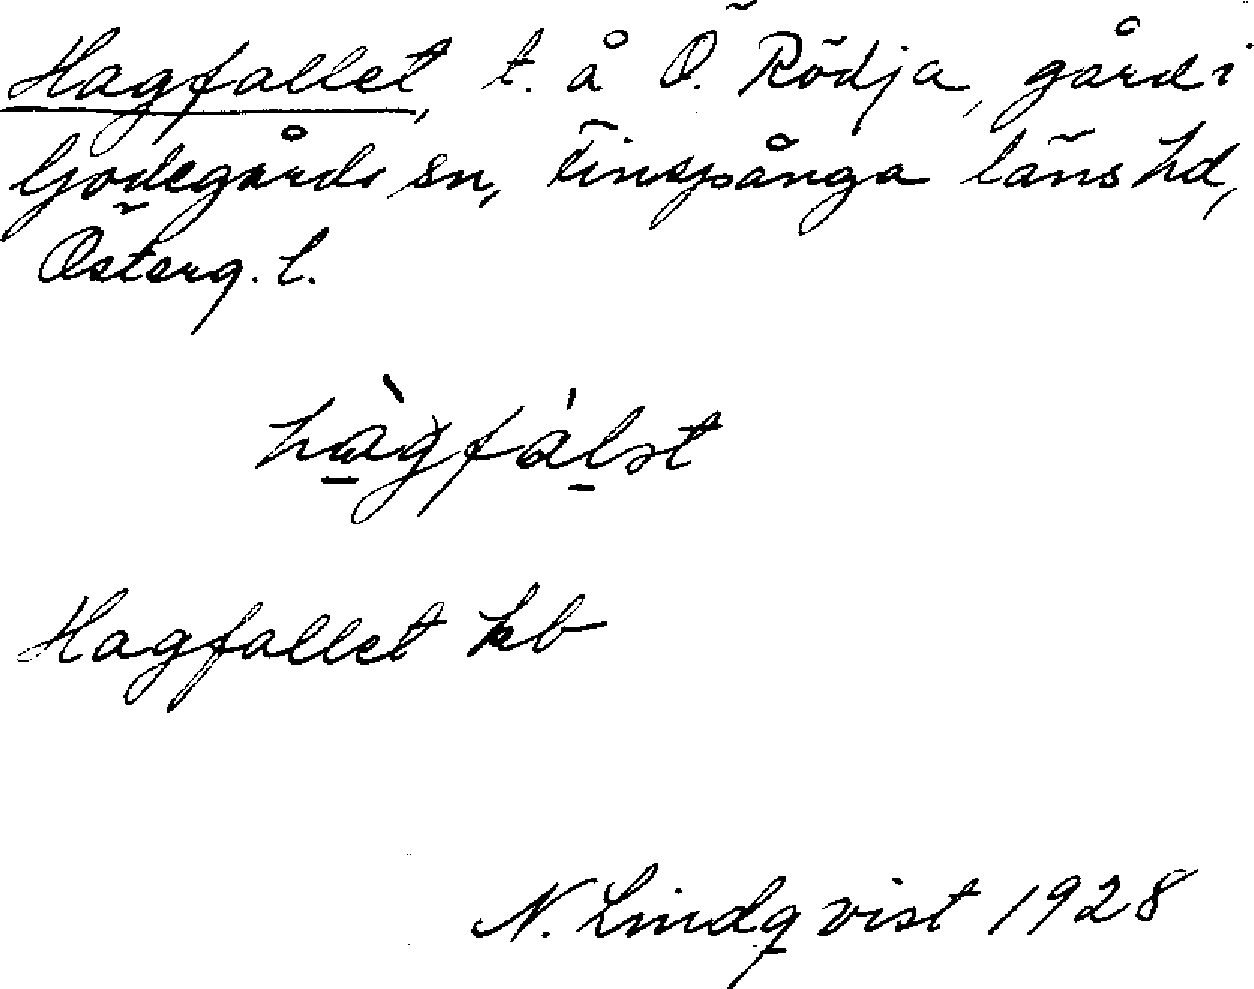 Hagfallet, t. å Ö. Rödja, gård i
Godegårds sn, Finspånga läns hd,
Österg. l.
hàgfálət
Hagfallet kb
N. Lindqvist 1928